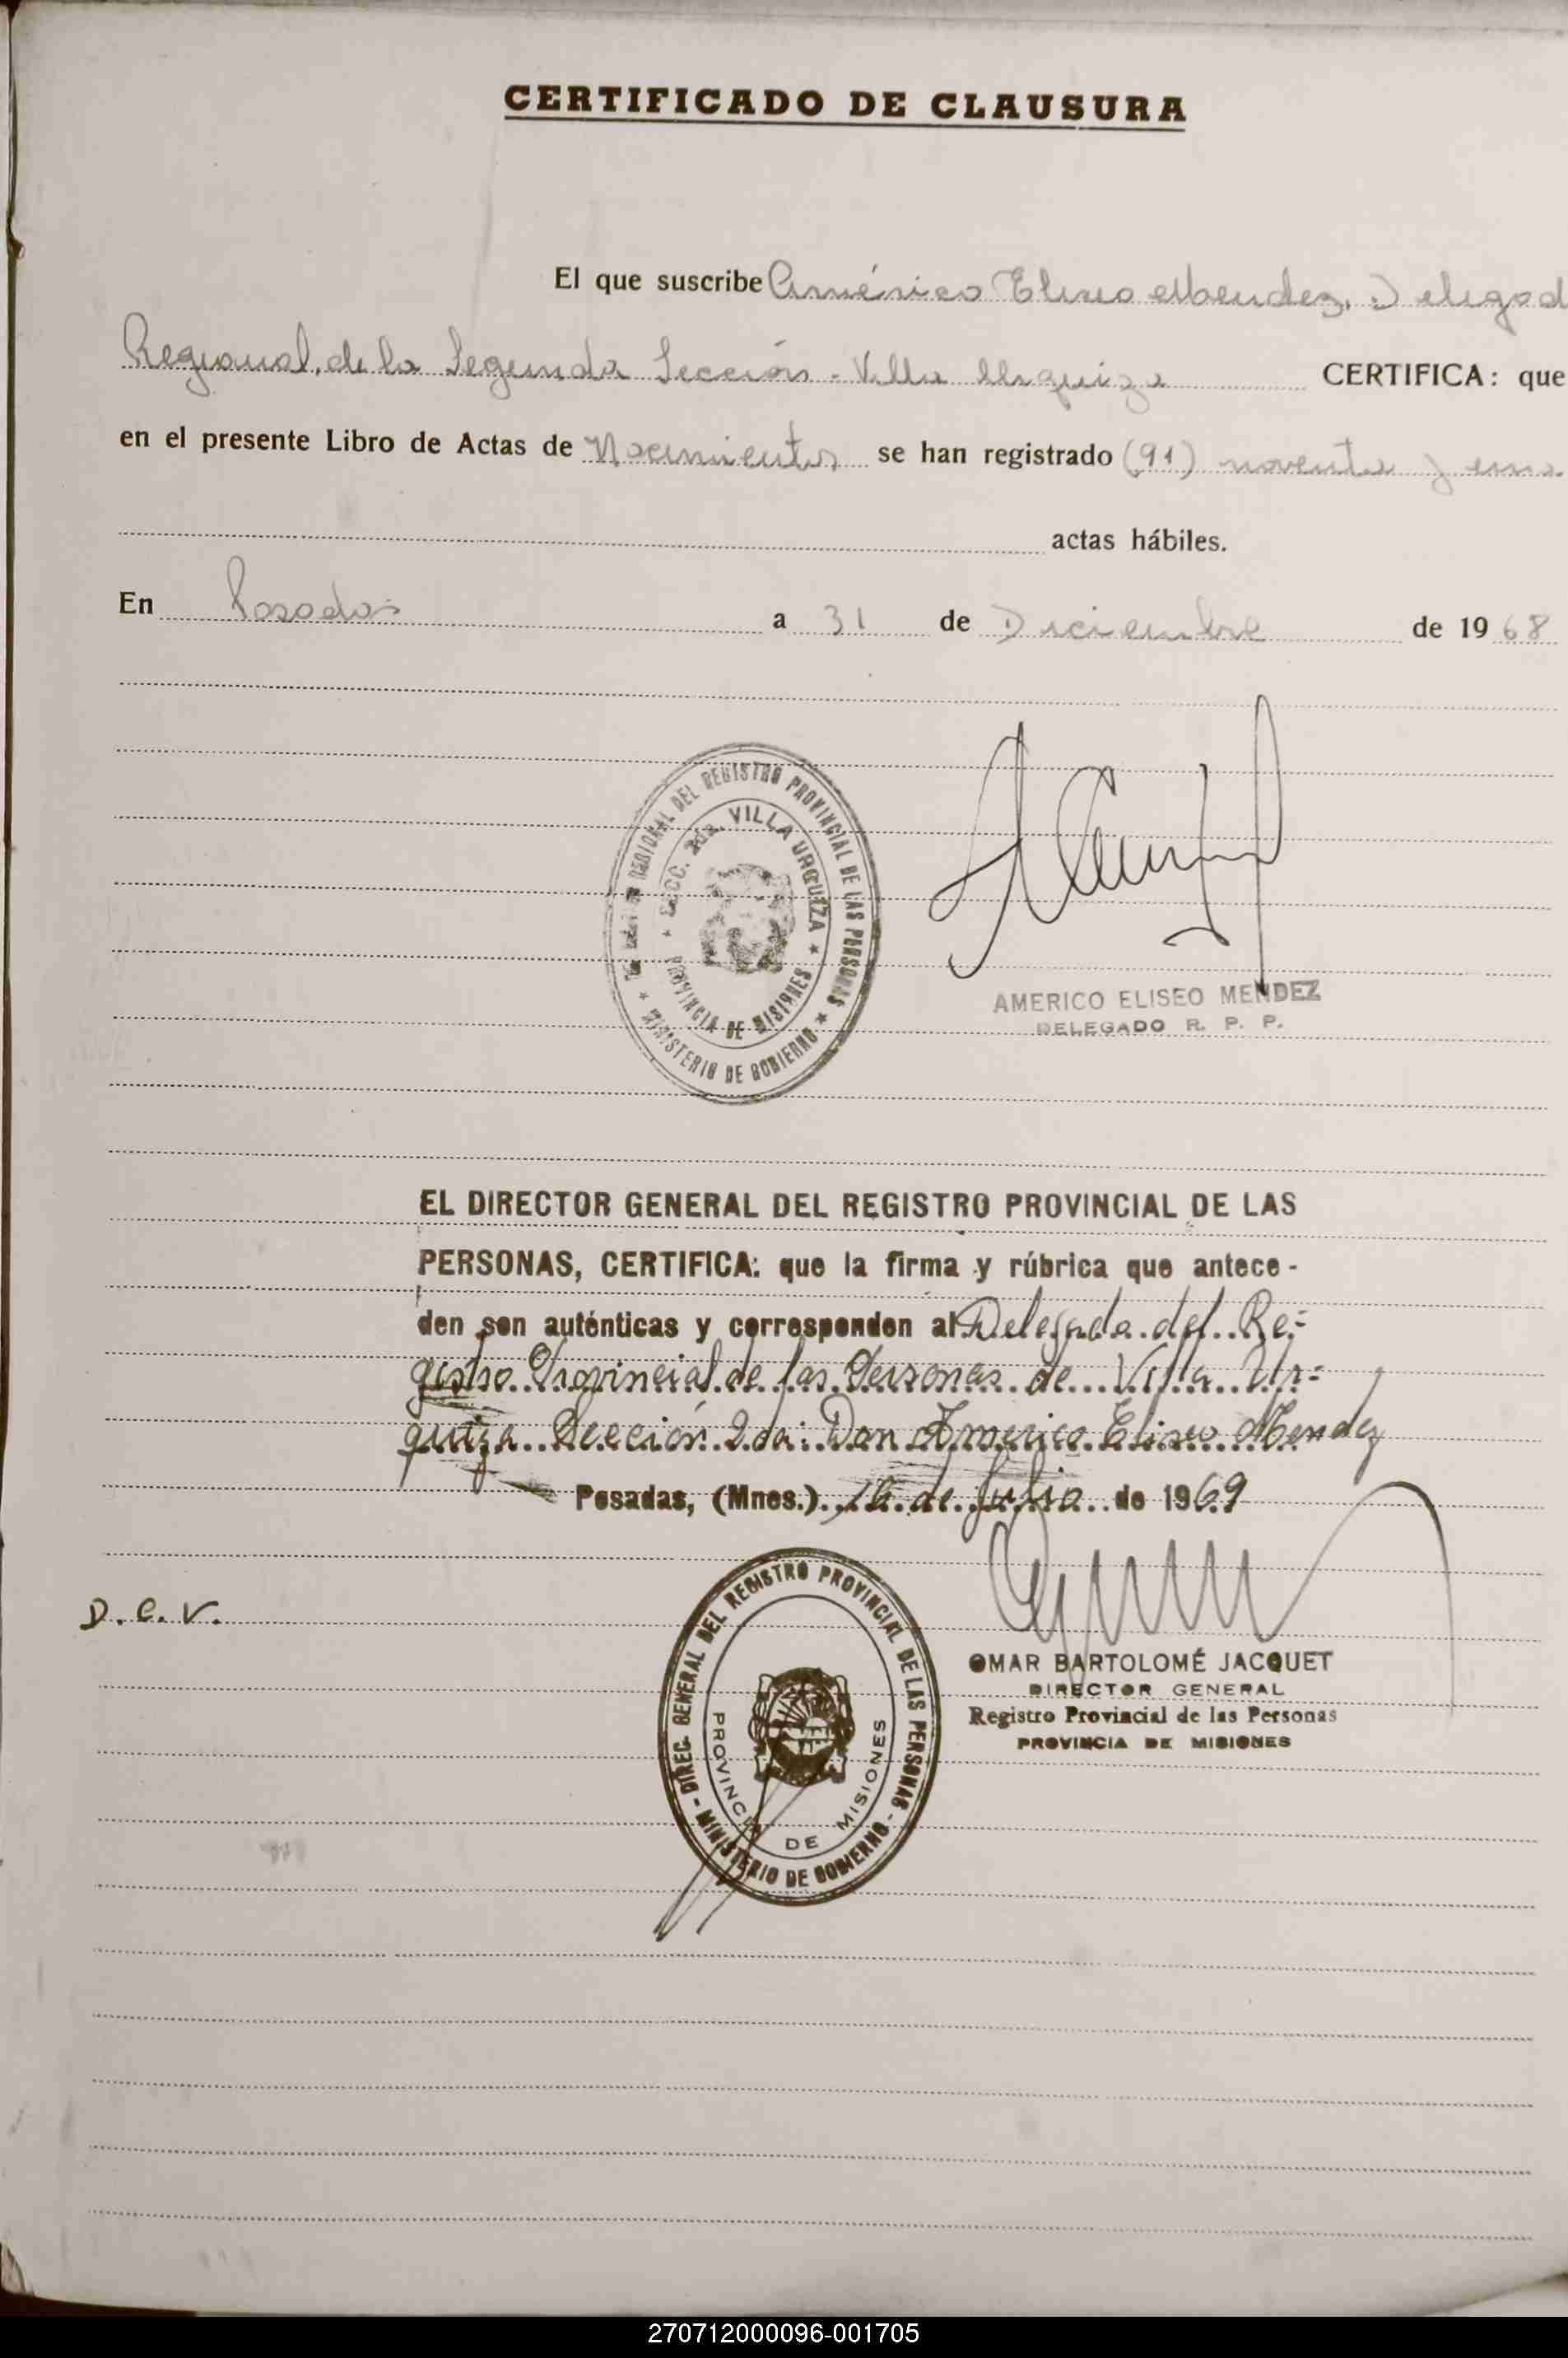 CERTIFICADO DE CLAUSURA
El que suscribe Américo Eliseo Mendez, Delegad
Regional de la Segunda Sección - Villa Urquiza CERTIFICA: que
en el presente Libro de Actas de Nacimientos se han registrado (91) noventa y una
actas hábiles.
En Posadas a 31 de Diciembre de 1968
REGIONAL DEL REGISTRO PROVINCIAL DE LAS PERSONAS
SECC. 2da. VILLA URQUIZA
PROVINCIA DE MISIONES
MINISTERIO DE GOBIERNO
AMERICO ELISEO MENDEZ
DELEGADO R. P. P.
EL DIRECTOR GENERAL DEL REGISTRO PROVINCIAL DE LAS
PERSONAS, CERTIFICA: que la firma y rúbrica que antece-
den son auténticas y corresponden al Delegado del Re-
gistro Provincial de las Personas de Villa Ur-
quiza Sección 2da: Don Americo Eliseo Mendez
Posadas, (Mnes.) 16 de Julio de 1969
D.C.V.
DIREC. GENERAL DEL REGISTRO PROVINCIAL DE LAS PERSONAS - MINISTERIO DE GOBIERNO -
PROVINCIA DE MISIONES
OMAR BARTOLOMÉ JACQUET
DIRECTOR GENERAL
Registro Provincial de las Personas
PROVINCIA DE MISIONES
270712000096-001705